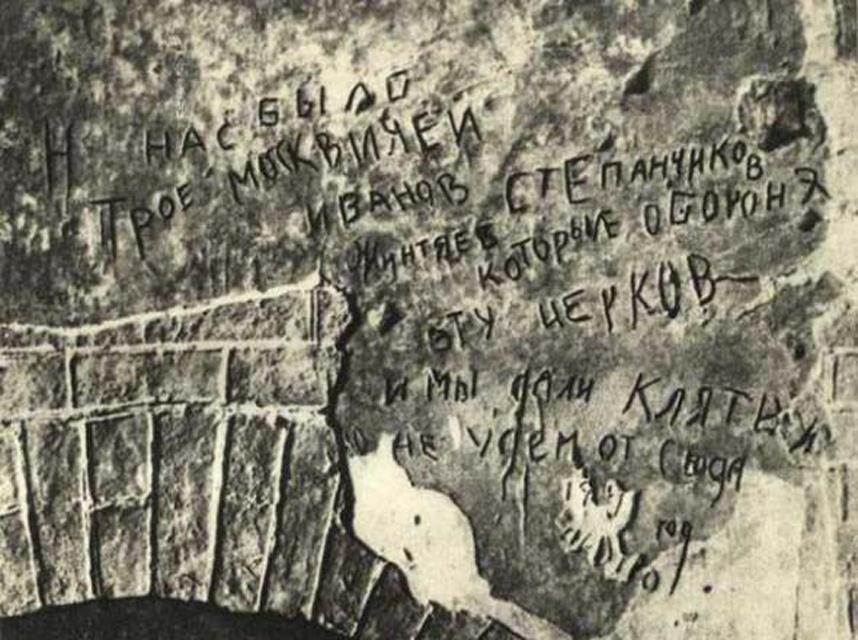 НАС БЫЛО
ТРОЕ МОСКВИЧЕЙ
ИВАНОВ СТЕПАНЧИКОВ
ЖУНТЯЕВ
КОТОРЫЕ ОБОРОНЯ
ЭТУ ЦЕРКОВ
И МЫ ДАЛИ КЛЯТВУ
НЕ УЙДЕМ ОТ СЮДА
год